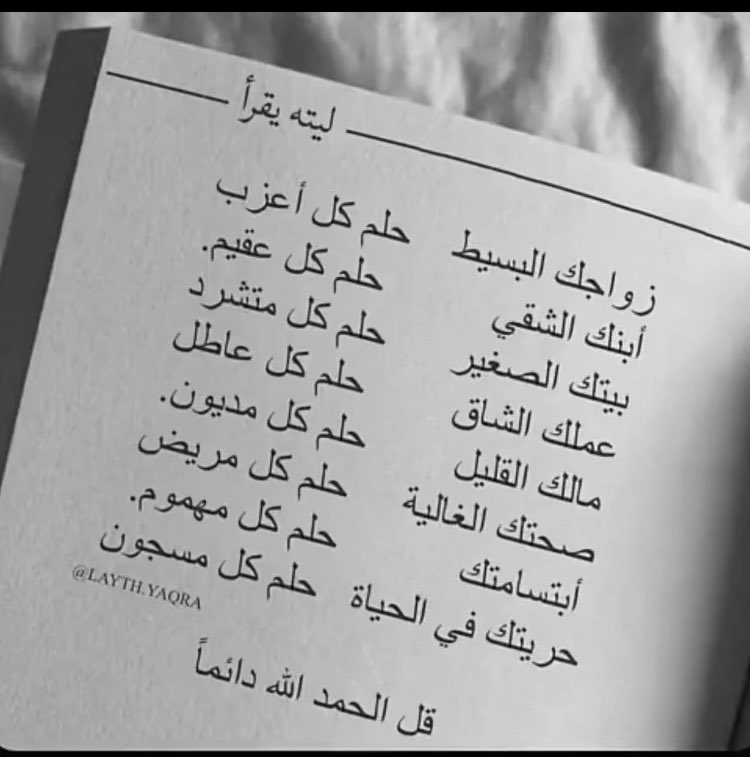 ليته يقرأ
زواجك البسيط حلم كل أعزب
أبنك الشقي حلم كل عقيم.
بيتك الصغير حلم كل متشرد
عملك الشاق حلم كل عاطل
مالك القليل حلم كل مديون.
صحتك الغالية حلم كل مريض
أبتسامتك حلم كل مهموم.
حريتك في الحياة حلم كل مسجون
@LAYTH.YAQRA
قل الحمد الله دائماً